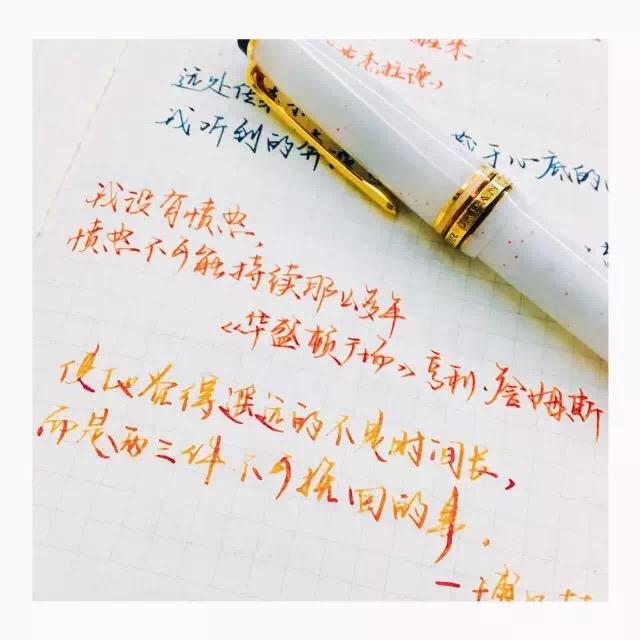 茨杰拉德》
远处传来
我听到的奔
于心底的
我没有愤怒,
愤怒不可能持续那么多年
《华盛顿广场》亨利·詹姆斯
使他觉得遥远的不是时间长,
而是两三件不可挽回的事。
JAPAN